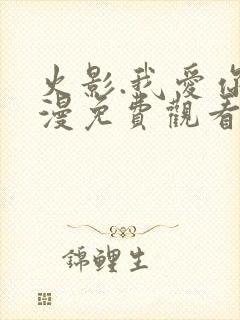 火影.我愛你
漫免費觀看
錦鯉生